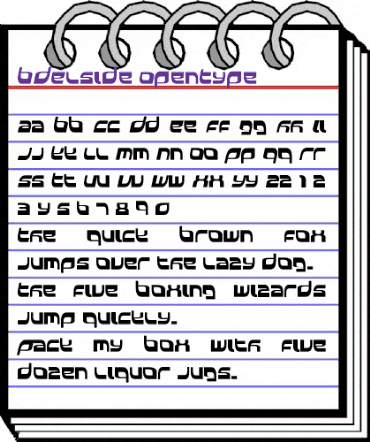 Bdelside OpenType
Aa Bb Cc Dd Ee Ff Gg Hh Ii
Jj Kk Ll Mm Nn Oo Pp Qq Rr
Ss Tt Uu Vv Ww Xx Yy Zz 1 2
3 4 5 6 7 8 9 0
The quick brown fox
jumps over the lazy dog.
The five boxing wizards
jump quickly.
Pack my box with five
dozen liquor jugs.